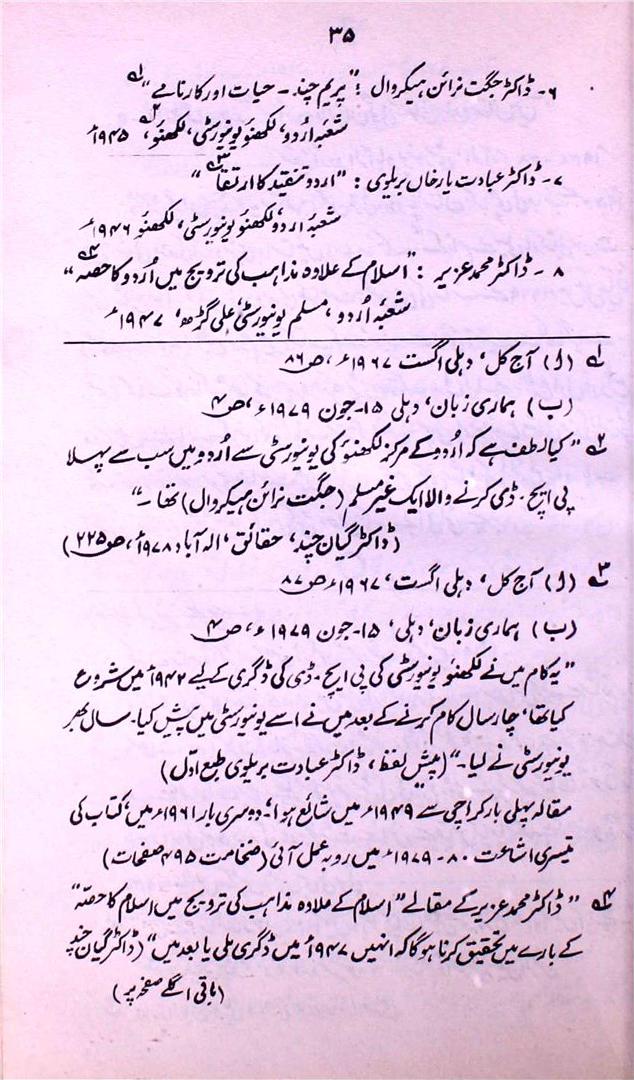 ۳۵
۶۔ ڈاکٹر جگت نرائن ہیکروال : "پریم چند۔ حیات اور کارنامے" ۱؎
شعبۂ اردو، لکھنؤ یونیورسٹی، لکھنؤ، ۲؎ ۱۹۴۵ء
۷۔ ڈاکٹر عبادت یار خاں بریلوی : "اردو تنقید کا ارتقا" ۳؎
شعبۂ اردو، لکھنؤ یونیورسٹی، لکھنؤ ۱۹۴۶ء
۸۔ ڈاکٹر محمد عزیر : "اسلام کے علاوہ مذاہب کی ترویج میں اُردو کا حصّہ" ۴؎
شعبۂ اُردو، مسلم یونیورسٹی، علی گڑھ، ۱۹۴۷ء
۱؎ (ا) آج کل، دہلی اگست ۱۹۶۷ء، ص ۸۶
(ب) ہماری زبان، دہلی ۱۵۔جون ۱۹۷۹ء، ص ۴
۲؎ "کیا لطف ہے کہ اُردو کے مرکز لکھنؤ کی یونیورسٹی سے اُردو میں سب سے پہلا
پی ایچ۔ڈی کرنے والا ایک غیر مسلم (جگت نرائن ہیکروال) تھا۔"
(ڈاکٹر گیان چند، حقائق، الہ آباد ۱۹۷۸ء، ص ۲۲۵)
۳؎ (ا) آج کل، دہلی اگست، ۱۹۶۷ء ص ۸۷
(ب) ہماری زبان، دہلی، ۱۵۔جون ۱۹۷۹ء، ص ۴
"یہ کام میں نے لکھنؤ یونیورسٹی کی پی ایچ۔ڈی کی ڈگری کے لیے ۱۹۴۲ء میں شروع
کیا تھا، چار سال کام کرنے کے بعد میں نے اسے یونیورسٹی میں پیش کیا۔ سال بھر
یونیورسٹی نے لیا۔" (پیش لفظ، ڈاکٹر عبادت بریلوی طبع اوّل)
مقالہ پہلی بار کراچی سے ۱۹۴۹ء میں شائع ہوا، دوسری بار ۱۹۶۱ء میں، کتاب کی
تیسری اشاعت ۸۰۔۱۹۷۹ء میں روبہ عمل آئی (ضخامت ۴۹۵ صفحات)
۴؎ "ڈاکٹر محمد عزیر کے مقالے "اسلام کے علاوہ مذاہب کی ترویج میں اسلام کا حصّہ"
کے بارے میں تحقیق کرنا ہوگا کہ انہیں ۱۹۴۷ء میں ڈگری ملی یا بعد میں" (ڈاکٹر گیان چند
(باقی اگلے صفحہ پر)